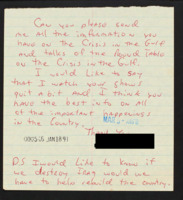 Can you please send
me all the information you
have on the Crisis in the Gulf
and talks of the
on the Crisis in the Gulf.
I would like to say
that I watch your show
quit a bit and I think you
have the best info on all
of the important happenings
in the Country.
Thank You
P.S I would like to know if
we destroy Iraq would we
have to help rebuild the country.